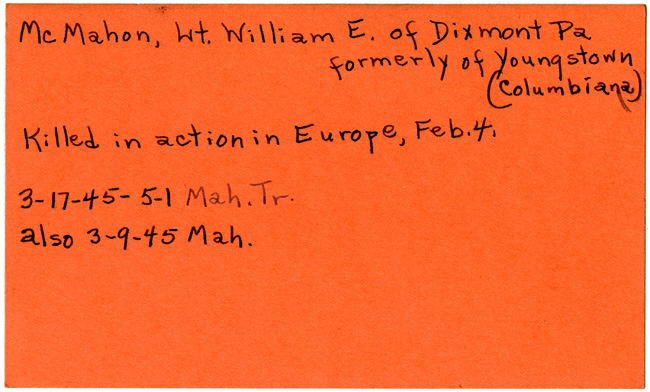 McMahon, Lt. William E. of Dixmont Pa
formerly of Youngstown
(Columbiana)
Killed in action in Europe, Feb. 4.
3-17-45- 5-1 Mah. Tr.
also 3-9-45 Mah.